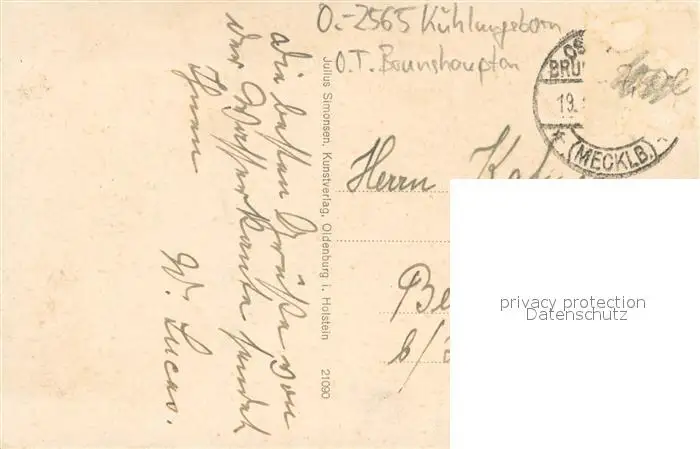 O.-2565 Kühlungsborn
O.T. Brunshaupten
Die besten Grüße von
der Wasserkante sendet
Ihnen
W. Lucas.
Julius Simonsen, Kunstverlag, Oldenburg i. Holstein 21090
BRU
19.
* (MECKLB.) *
Herrn
Be
b/
privacy protection
Datenschutz